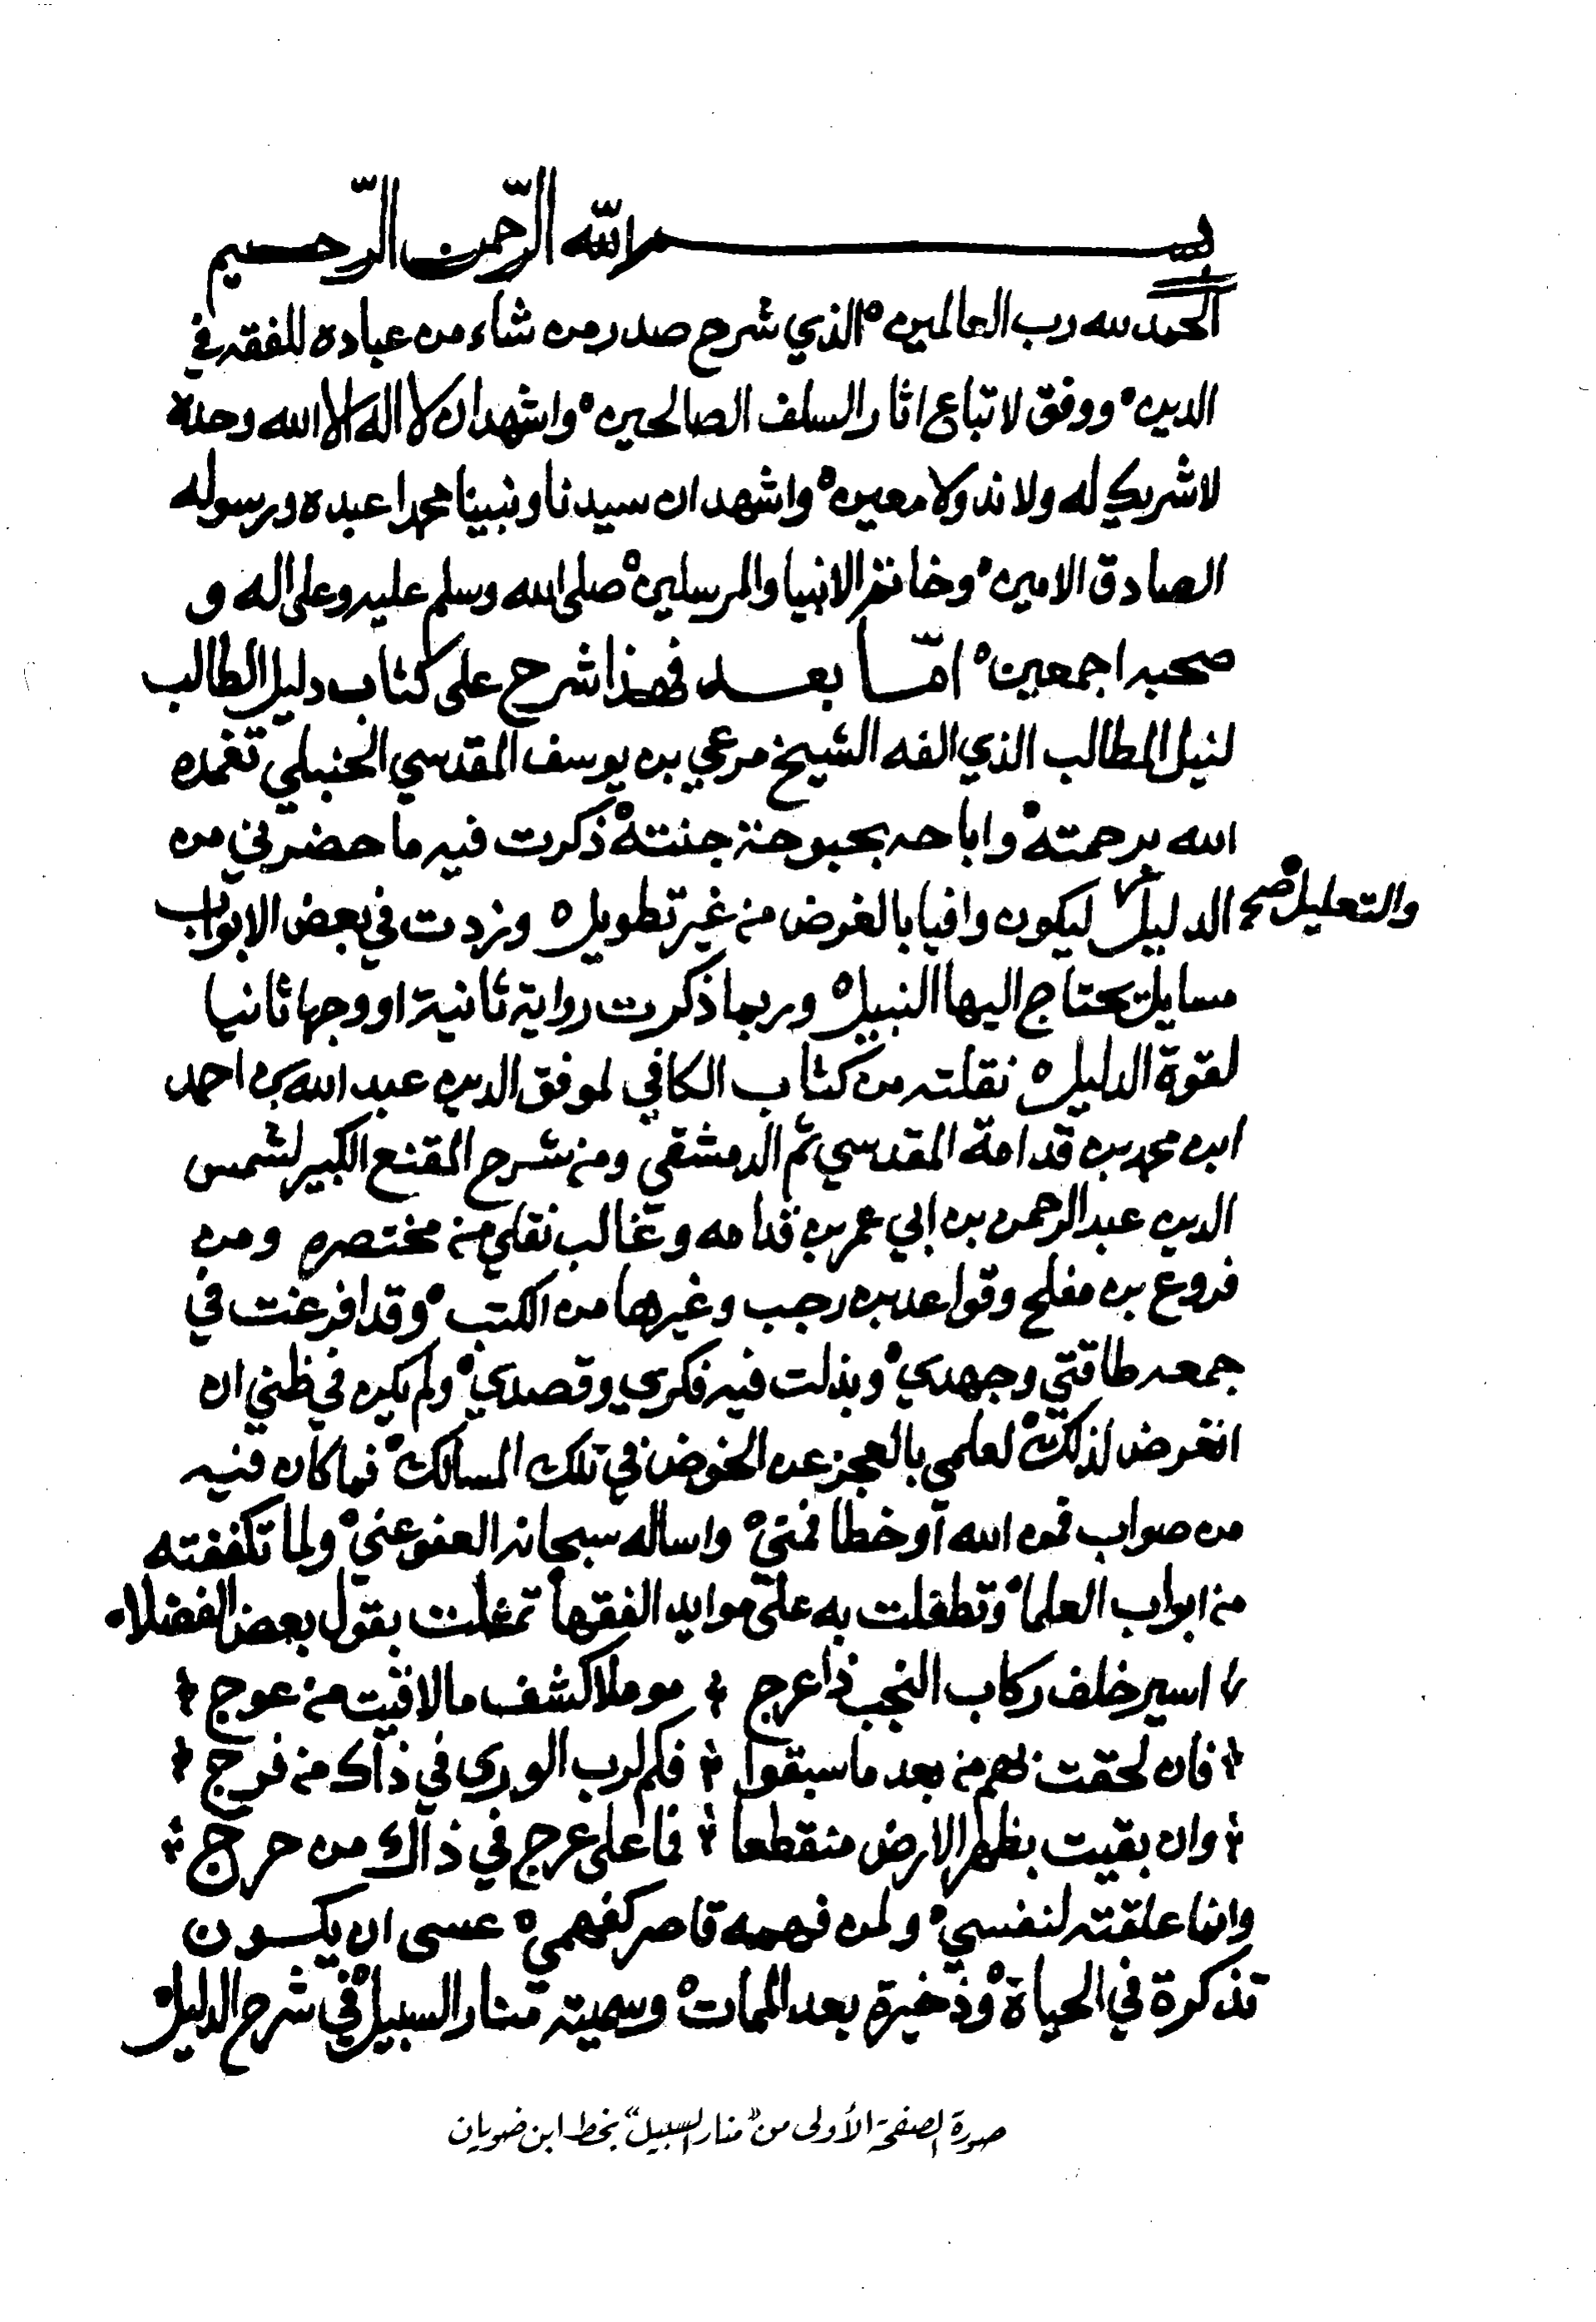 بسم الله الرّحمن الرّحيم
الحمد لله رب العالمين الذي شرح صدر من شاء من عباده للفقه في
الدين ووفق لاتباع اثار السلف الصالحين واشهد ان لا اله الا الله وحده
لا شريك له ولا ند ولا معين واشهد ان سيدنا ونبينا محمدا عبده ورسوله
الصادق الامين وخاتم الانبيا والمرسلين صلى الله وسلم عليه وعلى اله و
صحبه اجمعين امّا بعد فهذا شرح على كتاب دليل الطالب
لنيل المطالب الذي الفه الشيخ مرعي بن يوسف المقدسي الحنبلي تغمده
الله برحمته واباحه بحبوحة جنته ذكرت فيه ما حضرني من
الدليل والتعليل صح ليكون وافيا بالغرض من غير تطويل وزدت في بعض الابواب
مسايل يحتاج اليها النبيل وربما ذكرت رواية ثانية او وجها ثانيا
لقوة الدليل نقلته من كتاب الكافي لموفق الدين عبد الله بن احمد
ابن محمد بن قدامة المقدسي ثم الدمشقي ومن شرح المقنع الكبير لشمس
الدين عبد الرحمن بن ابي عمر بن قدامه وغالب نقلي من مختصره ومن
فروع بن مفلح وقواعد بن رجب وغيرها من الكتب وقد افرغت في
جمعه طاقتي وجهدي وبذلت فيه فكري وقصدي ولم يكن في ظني ان
اتعرض لذلك لعلمي بالعجز عن الخوض في تلك المسالك فما كان فيه
من صواب فمن الله او خطا فمني واساله سبحانه العفو عني ولما تكففته
من ابواب العلما وتطفلت به على موايد الفقها تمثلت بقول بعض الفضلا
اسير خلف ركاب النجب ذا عرج موملا كشف ما لاقيت من عوج
فان لحقت بهم من بعد ما سبقوا فكم لرب الورى في ذاك من فرج
وان بقيت بظهر الارض منقطعا فما على عرج في ذاك من حرج
وانما علقته لنفسي ولمن فهمه قاصر كفهمي عسى ان يكون
تذكرة في الحياة وذخيرة بعد الممات وسميته منار السبيل في شرح الدليل
صورة الصفحة الأولى من "منار السبيل" بخط ابن ضويان